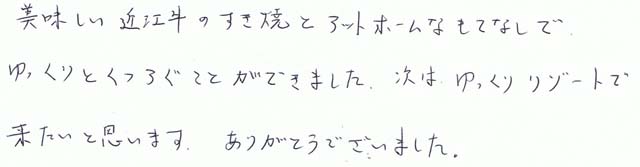 美味しい近江牛のすき焼とアットホームなもてなしで
ゆっくりとくつろぐことができました。次は ゆっくりリゾートで
来たいと思います。 ありがとうでございました。